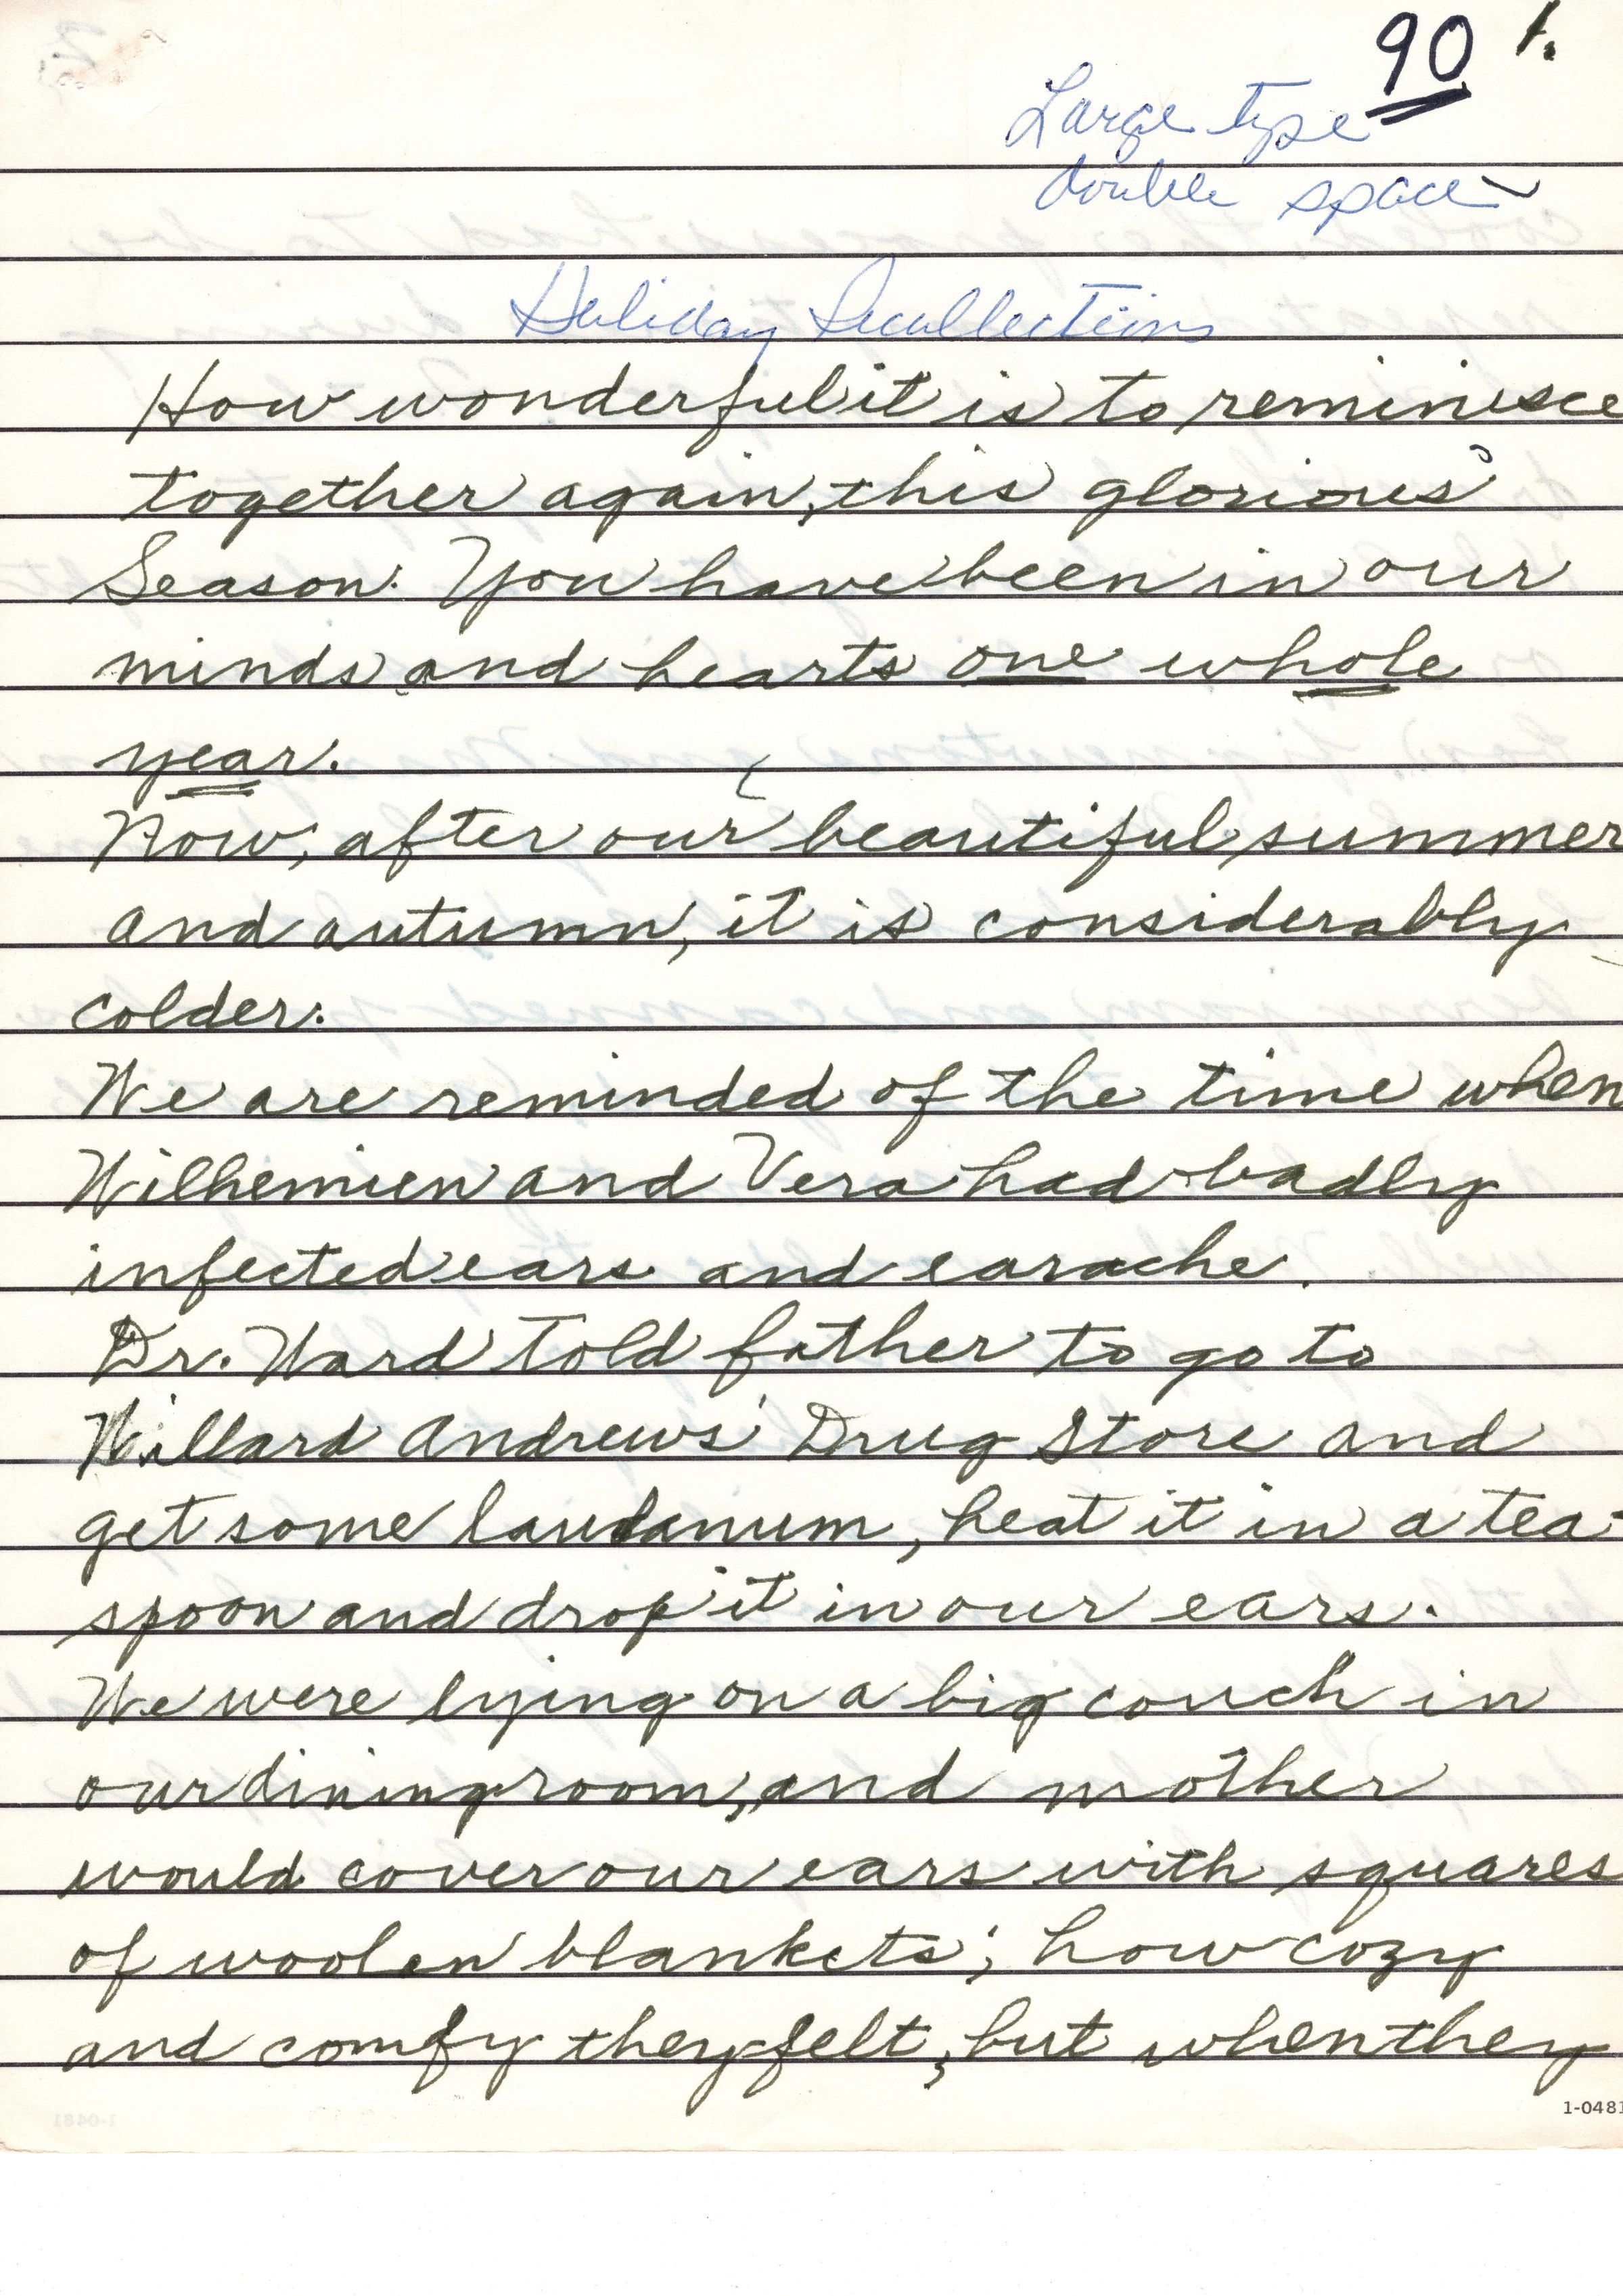 90 1.
Large type
double space
Holiday Recollections
How wonderful it is to reminisce
together again, this glorious
Season. You have been in our
minds and hearts one whole
year.
Now, after our beautiful summer
and autumn, it is considerably
colder.
We are reminded of the time when
Wilhemien and Vera had badly
infected ears and earache.
Dr. Ward told father to go to
Willard Andrews' Drug Store and
get some laudanum, heat it in a tea-
spoon and drop it in our ears.
We were lying on a big couch in
our diningroom, and mother
would cover our ears with squares
of woolen blankets; how cozy
and comfy they felt, but when they
1-0481